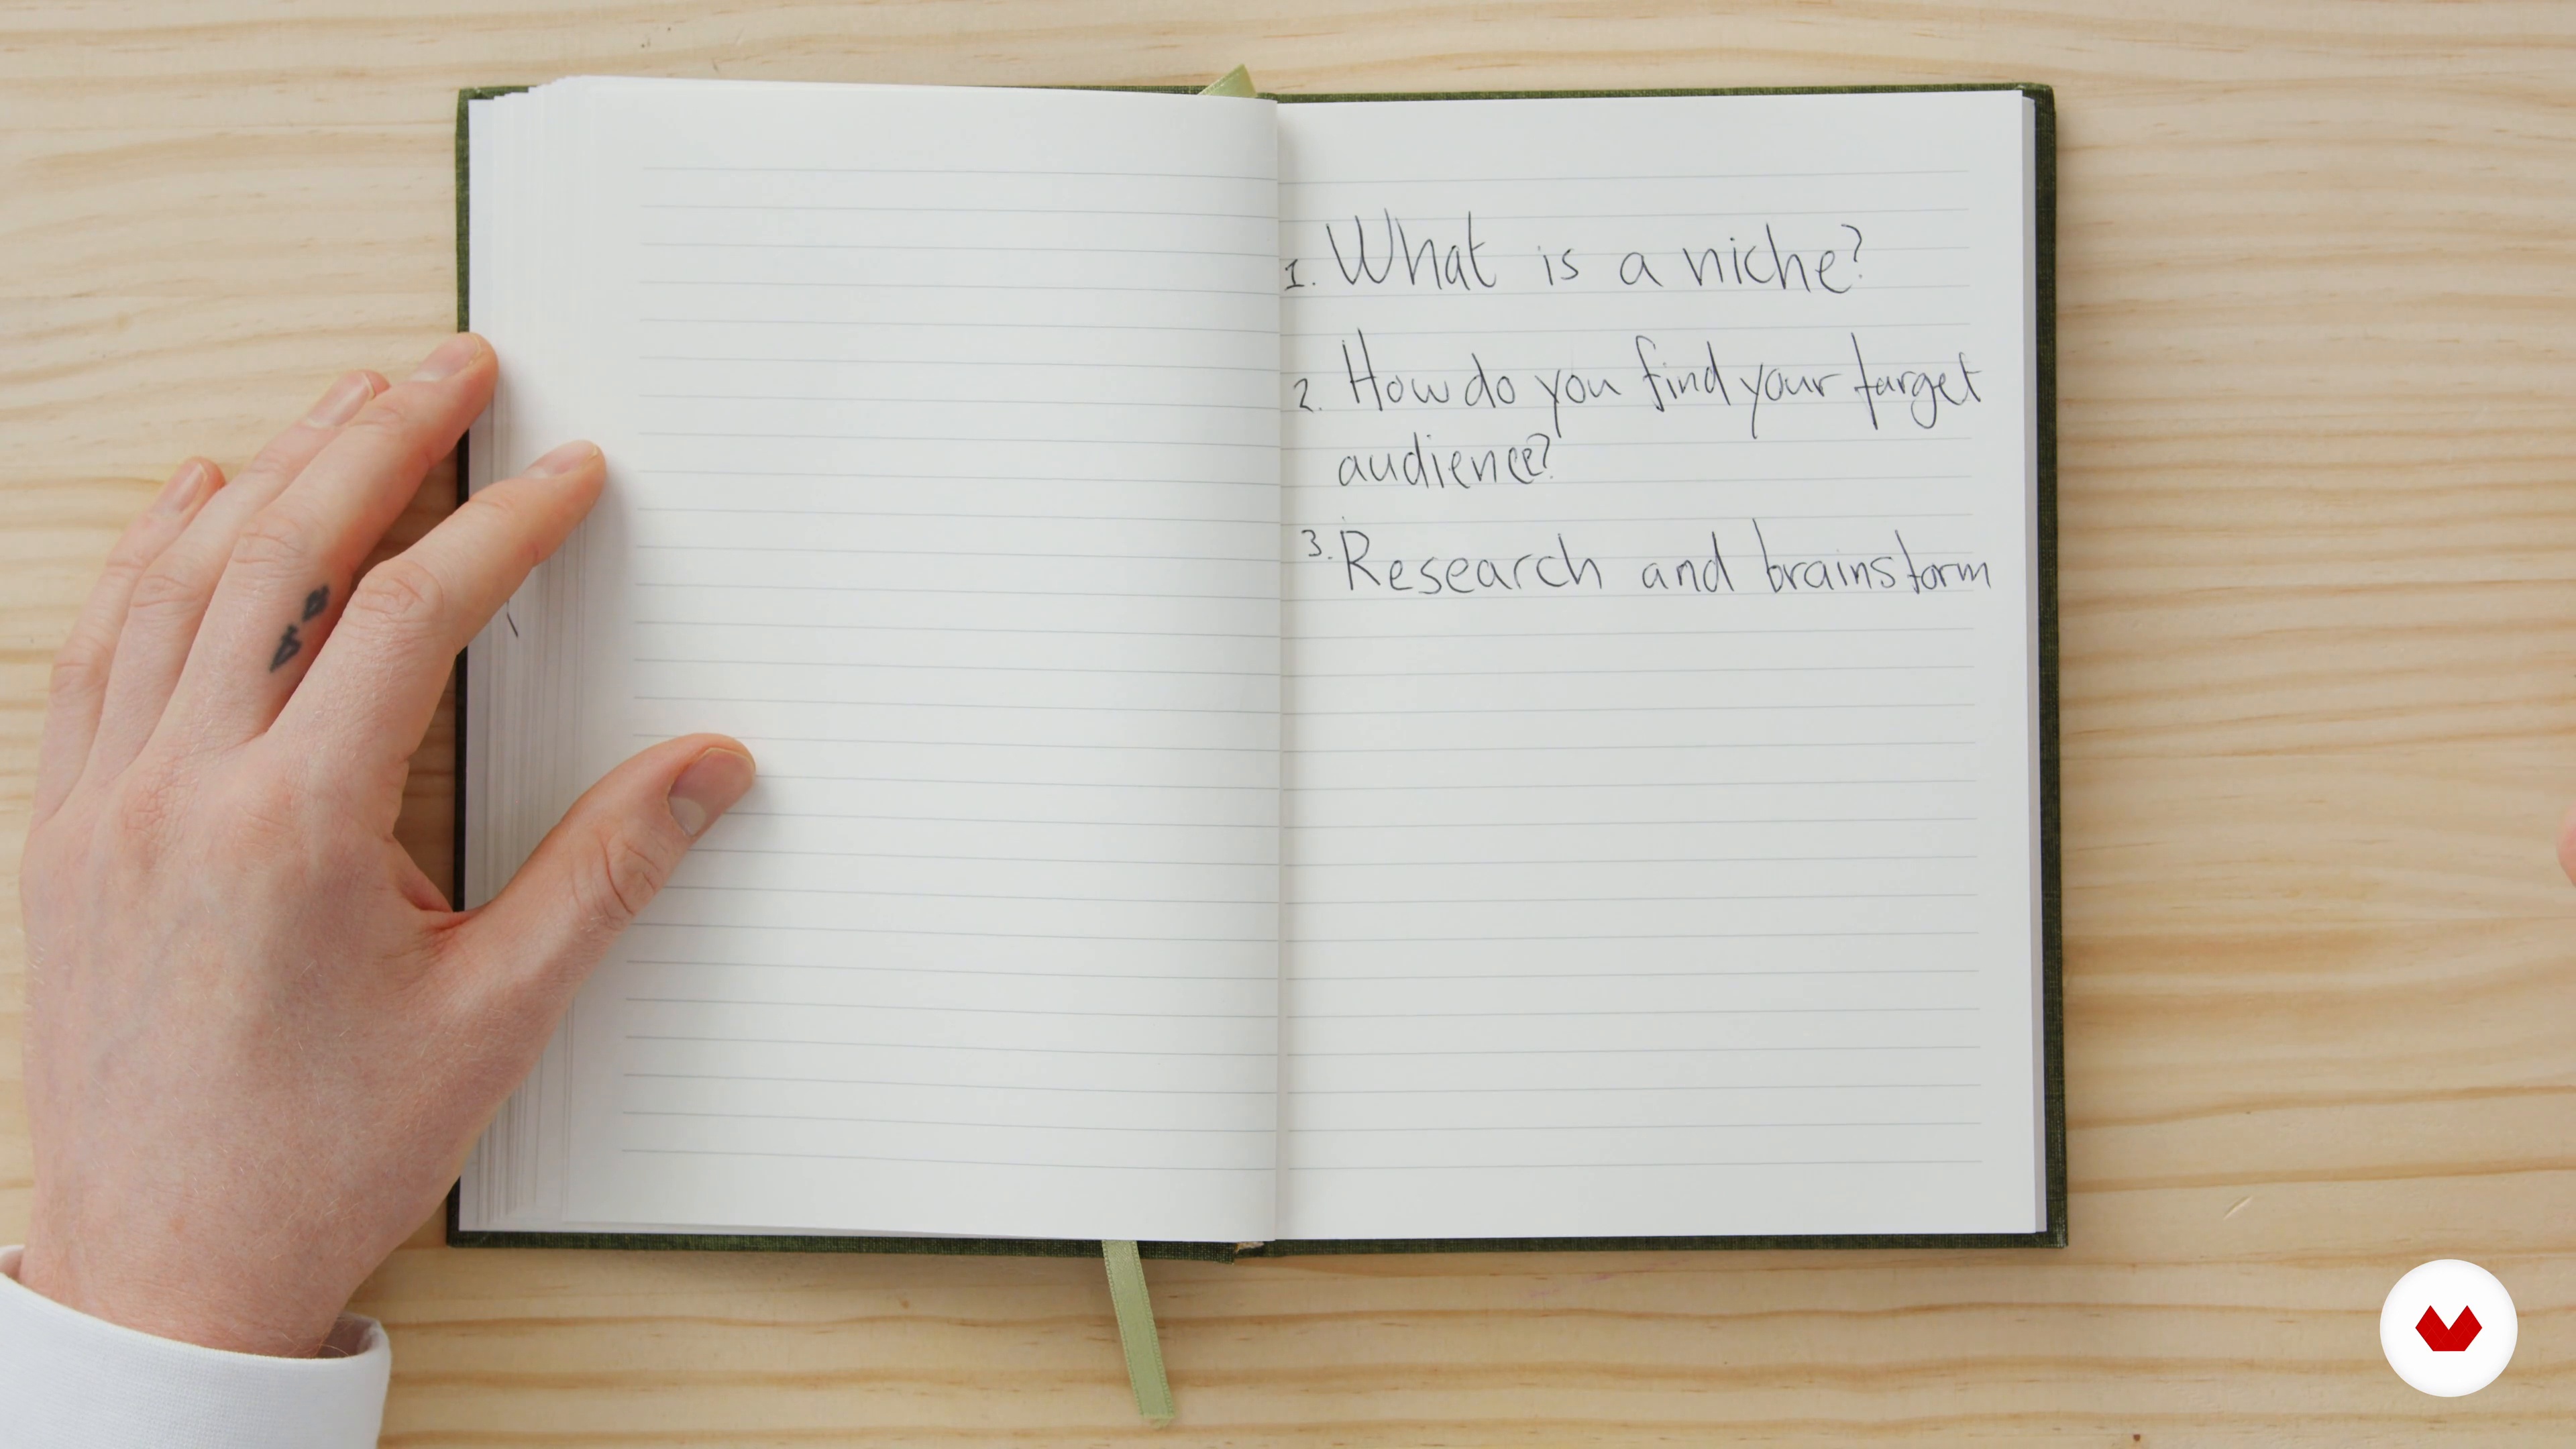 1. What is a niche?
2. How do you find your target
audience?
3. Research and brainstorm